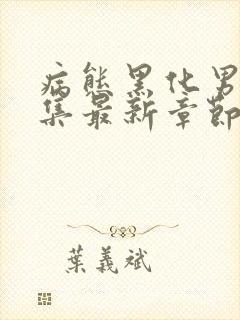 病態黑化男
集最新章節
葉義斌